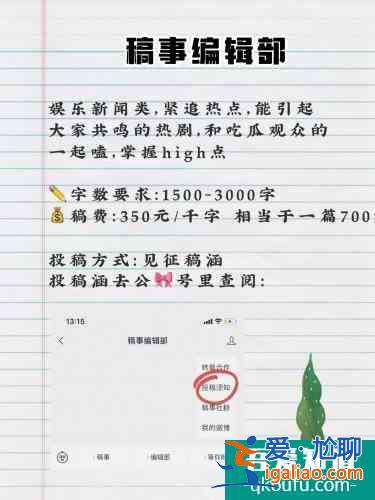 稿事编辑部
娱乐新闻类,紧追热点,能引起
大家共鸣的热剧,和吃瓜观众的
一起嗑,掌握high点
字数要求:1500-3000字
稿费:350元/千字 相当于一篇700
投稿方式:见征稿涵
投稿涵去公号里查阅:
13:15
稿事编辑部
转载合作
投稿须知
稿事社群
我的微博
稿事
稿事编辑部
爱·尬聊
qk5ufu.com